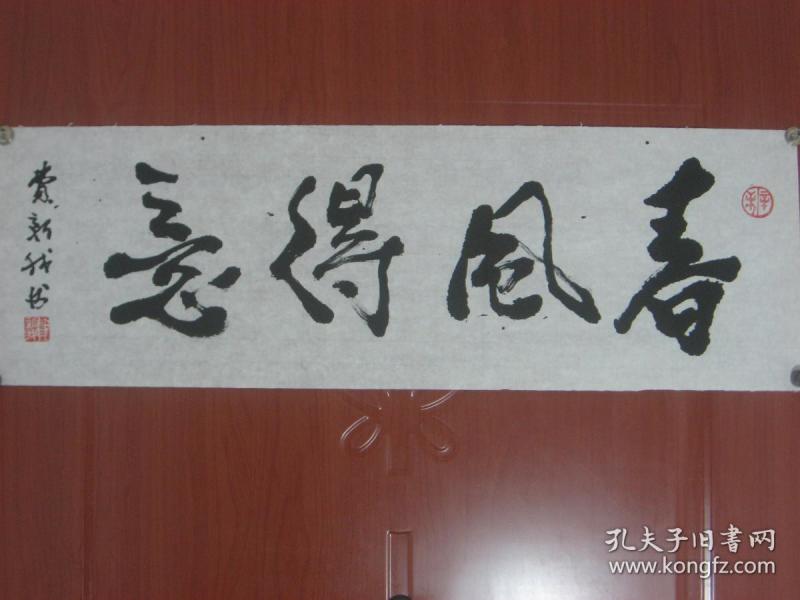 春風得意
费新我书
孔夫子旧書网
www.kongfz.com